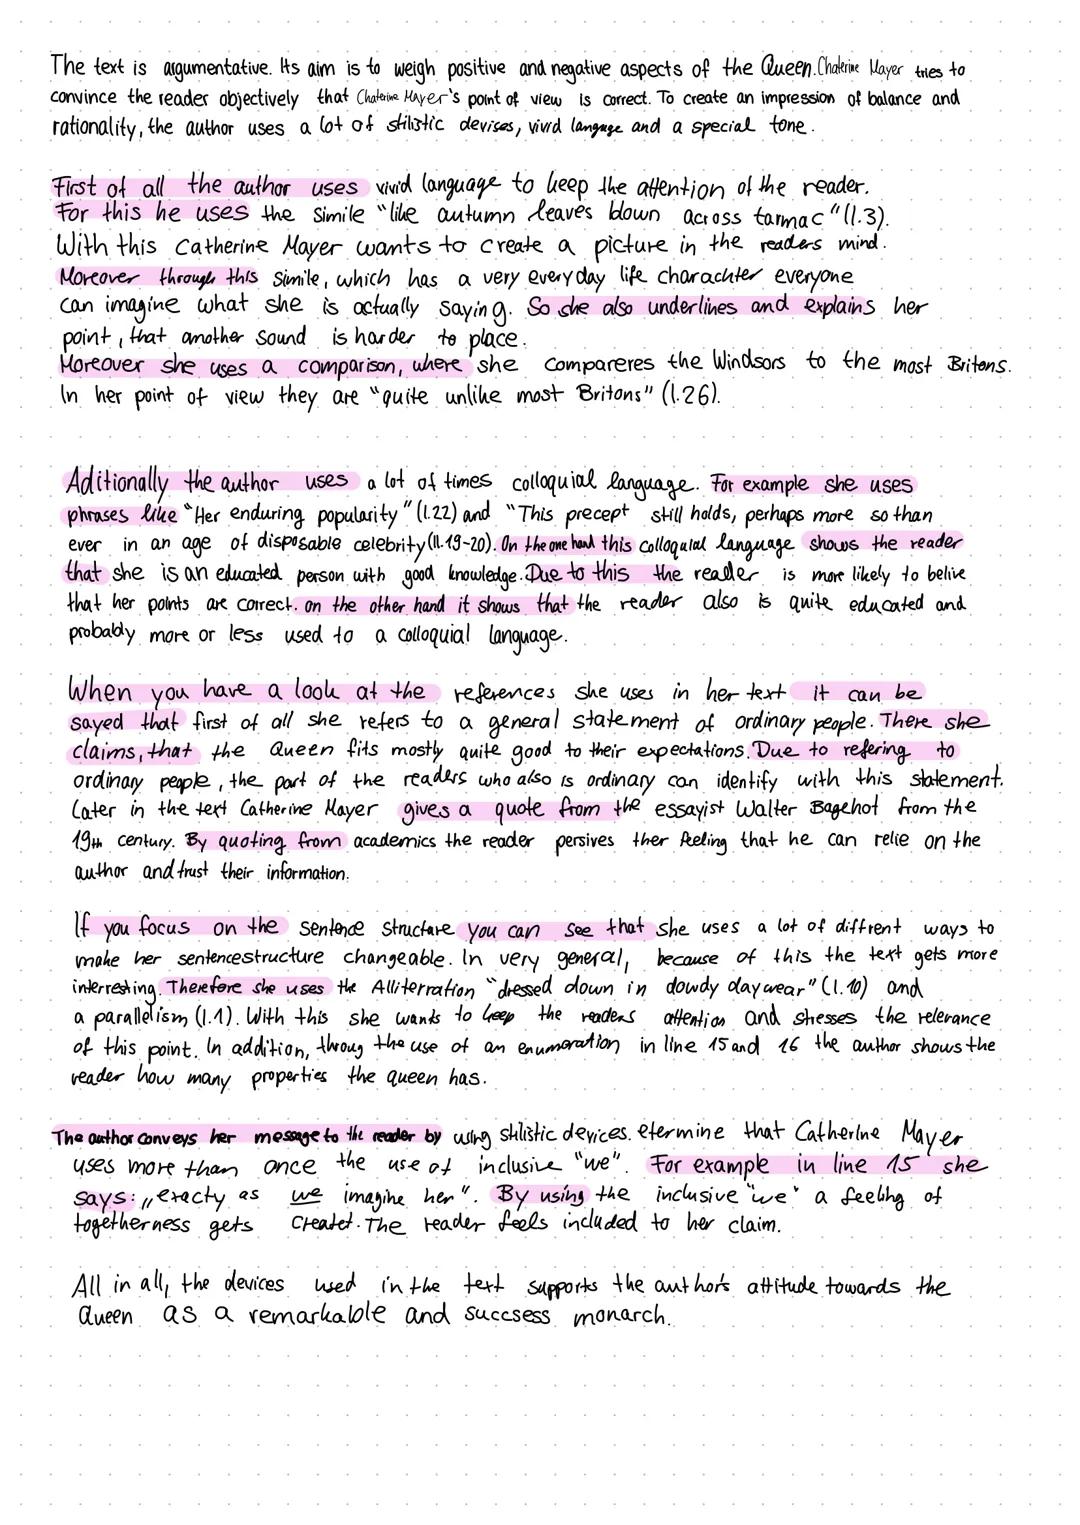 The text is argumentative. Its aim is to weigh positive and negative aspects of the Queen. Chaterine Mayer tries to
convince the reader objectively that Chaterine Mayer's point of view is correct. To create an impression of balance and
rationality, the author uses a lot of stilistic devises, vivid languge and a special tone.
First of all the author uses vivid language to keep the attention of the reader.
For this he uses the simile "like autumn leaves blown across tarmac" (l.3).
With this Catherine Mayer wants to create a picture in the readers mind.
Moreover through this simile, which has a very everyday life charachter everyone
can imagine what she is actually saying. So she also underlines and explains her
point, that another sound is harder to place.
Moreover she uses a comparison, where she compareres the Windsors to the most Britons.
In her point of view they are "quite unlike most Britons" (l.26).
Aditionally the author uses a lot of times colloquial language. For example she uses
phrases like "Her enduring popularity" (l.22) and "This precept still holds, perhaps more so than
ever in an age of disposable celebrity (ll.19-20). On the one hand this colloquial language shows the reader
that she is an educated person with good knowledge. Due to this the reader is more likely to belive
that her points are correct. on the other hand it shows that the reader also is quite educated and
probably more or less used to a colloquial language.
When you have a look at the references she uses in her text it can be
sayed that first of all she refers to a general statement of ordinary people. There she
claims, that the Queen fits mostly quite good to their expectations. Due to refering to
ordinary people, the part of the readers who also is ordinary can identify with this statement.
Later in the text Catherine Mayer gives a quote from the essayist Walter Bagehot from the
19th century. By quoting from academics the reader persives ther feeling that he can relie on the
author and trust their information.
If you focus on the sentence structure you can see that she uses a lot of diffrent ways to
make her sentencestructure changeable. In very general, because of this the text gets more
interresting. Therefore she uses the Alliterration "dressed down in dowdy daywear" (l.10) and
a parallelism (l.1). With this she wants to keep the readers attention and stresses the relevance
of this point. In addition, throug the use of an enumeration in line 15 and 16 the author shows the
reader how many properties the queen has.
The author conveys her message to the reader by using stilistic devices. etermine that Catherine Mayer
uses more than once the use of inclusive "we". For example in line 15 she
says: „exacty as we imagine her". By using the inclusive "we" a feeling of
togetherness gets createt. The reader feels included to her claim.
All in all, the devices used in the text supports the author's attitude towards the
Queen as a remarkable and succsess monarch.